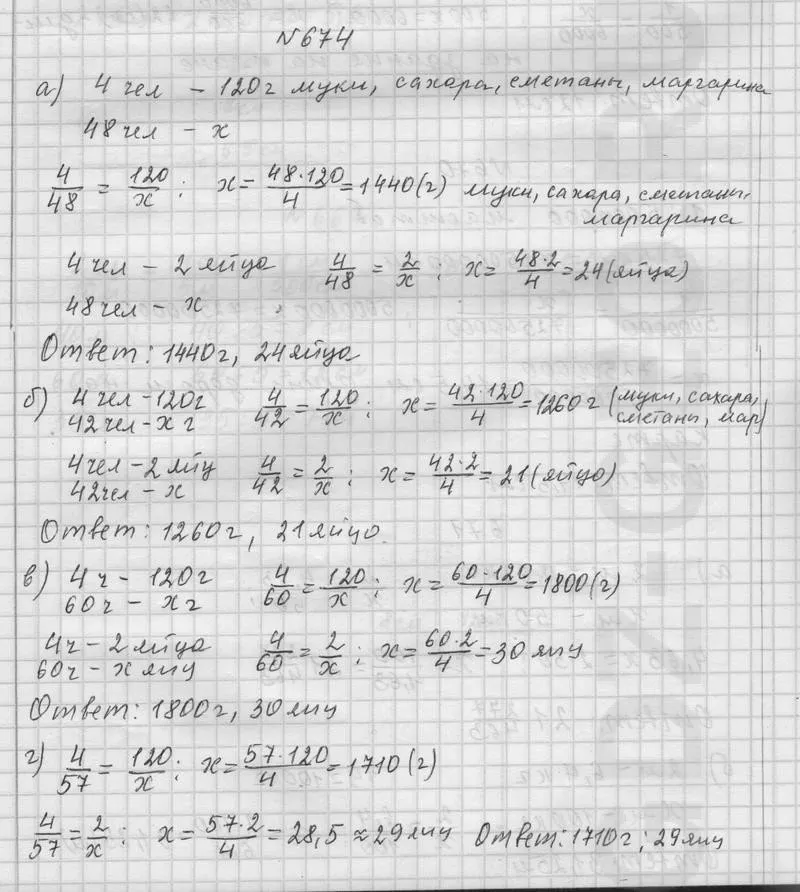 №674
а) 4 чел – 120г муки, сахара, сметаны, маргарина
48 чел – x
4/48 = 120/x ; x = 48·120/4 = 1440(г) муки, сахара, сметаны, маргарина
4 чел – 2 яйца 4/48 = 2/x ; x = 48·2/4 = 24(яйца)
48 чел – x
Ответ: 1440г, 24 яйца
б) 4 чел – 120г 4/42 = 120/x ; x = 42·120/4 = 1260г (муки, сахара, сметаны, мар)
42 чел – x г
4 чел – 2 яиц 4/42 = 2/x ; x = 42·2/4 = 21(яйцо)
42 чел – x
Ответ: 1260г, 21 яйцо.
в) 4 ч – 120г 4/60 = 120/x ; x = 60·120/4 = 1800(г)
60 ч – x г
4 ч – 2 яйца 4/60 = 2/x ; x = 60·2/4 = 30 яиц
60 ч – x яиц
Ответ: 1800г, 30 яиц
г) 4/57 = 120/x ; x = 57·120/4 = 1710(г)
4/57 = 2/x ; x = 57·2/4 = 28,5 ≈ 29 яиц Ответ: 1710г; 29 яиц